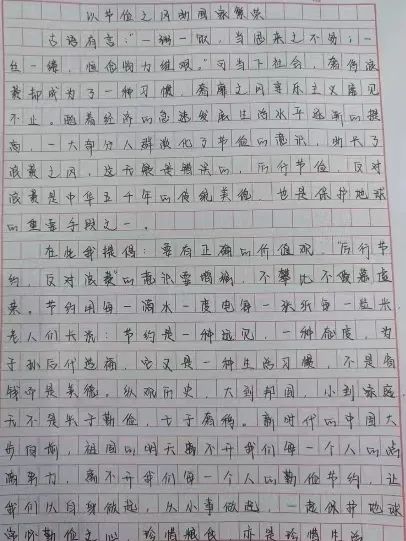 以节俭之风助国家繁荣
古语有言："一粥一饭，当思来之不易；一
丝一缕，恒念物力维艰。"可当下社会，奢侈浪
费却成为了一种习惯，奢靡之风享乐主义屡见
不止。随着经济的急速发展生活水平逐渐的提
高，一大部分人群淡化了节俭的意识，助长了
浪费之风，这无疑是错误的，厉行节俭，反对
浪费是中华五千年的传统美德，也是保护地球
的重要手段之一。
在此我提倡：要有正确的价值观，"厉行节
约，反对浪费"的意识要增输，不攀比不做慕虚
荣。节约用每一滴水一度电每一张纸每一粒米，
老人们长说：节约是一种远见，一种态度，为
子孙后代造福，它又是一种生活习惯，不是省
钱而是美德。纵观历史，大到邦国，小到家庭，
无不是兴于勤俭，亡于奢侈。新时代的中国大
步向前，祖国的明天离不开我们每一个人的
努力，离不开我们每一个人的勤俭节约，让
我们从自身做起，从小事做起，一起保护地球
常怀勤俭之心，珍惜粮食，亦是珍惜生活